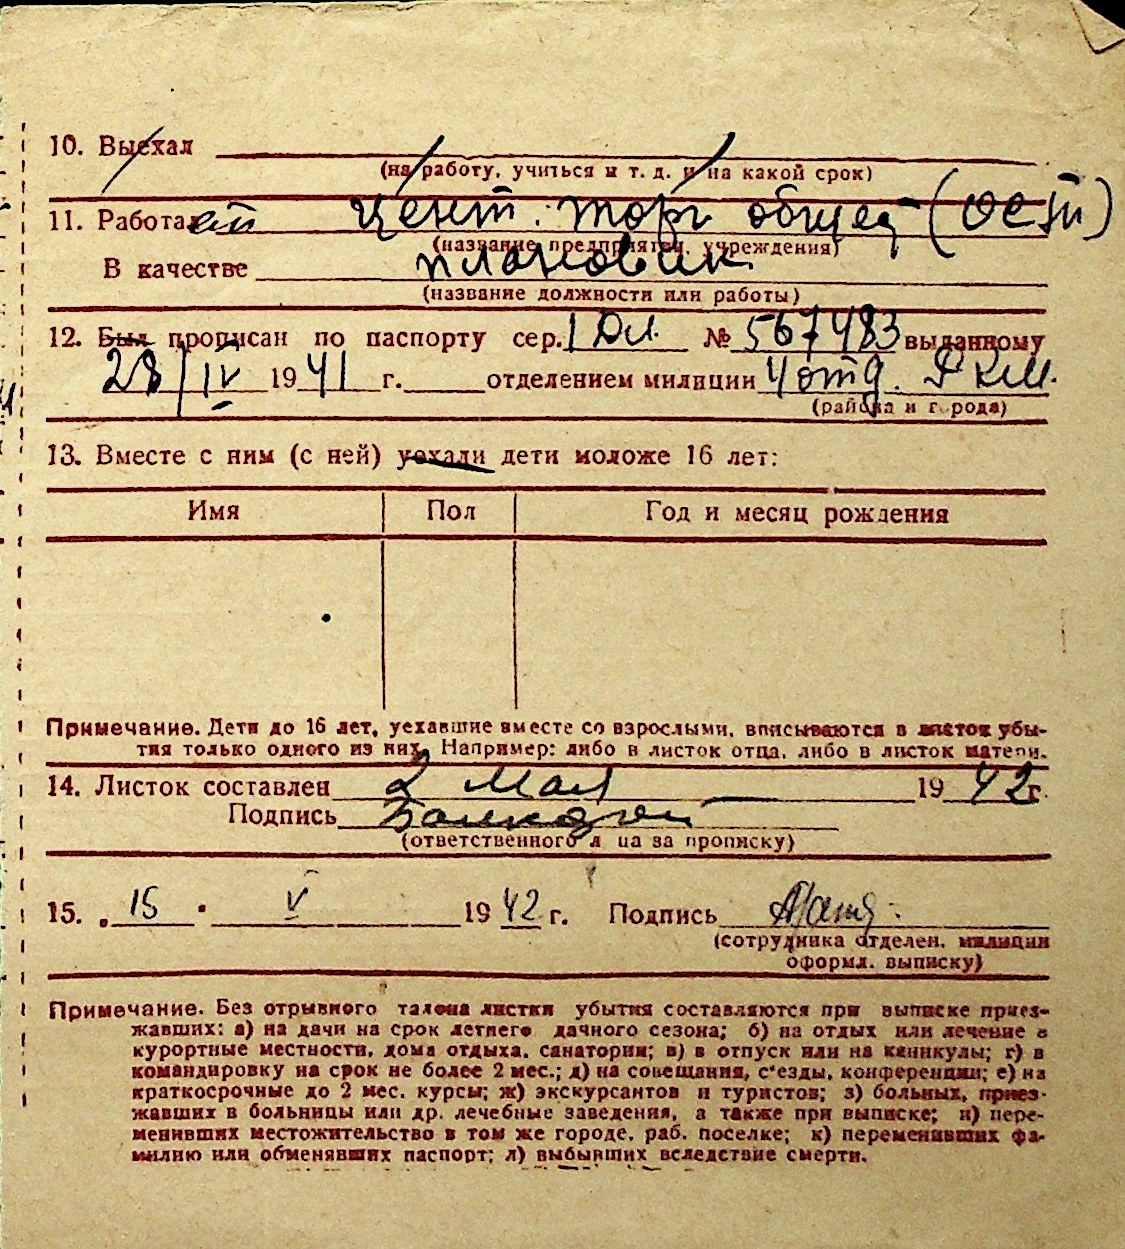 10. Выехал
(на работу, учиться и т. д. и на какой срок)
11. Работает Цент. торг общ
(название предприятия, учреждения)
В качестве плановик
(название должности или работы)
12. Был прописан по паспорту сер. № 567483 выданному
28/IV 1941 г. отделением милиции 4 отд. РКМ.
(района и города)
13. Вместе с ним (с ней) уехали дети моложе 16 лет:
Имя Пол Год и месяц рождения
Примечание. Дети до 16 лет, уехавшие вместе со взрослыми, вписываются в листок убы-
тия только одного из них. Например: либо в листок отца, либо в листок матери.
14. Листок составлен 2 Мая 1942 г.
Подпись
(ответственного лица за прописку)
15. „ 15 " V 1942 г. Подпись
(сотрудника отделен. милиции
оформл. выписку)
Примечание. Без отрывного талона листки убытия составляются при выписке приез-
жавших: а) на дачи на срок летнего дачного сезона; б) на отдых или лечение в
курортные местности, дома отдыха, санатории; в) в отпуск или на каникулы; г) в
командировку на срок не более 2 мес.; д) на совещания, с'езды, конференции; е) на
краткосрочные до 2 мес. курсы; ж) экскурсантов и туристов; з) больных, приез-
жавших в больницы или др. лечебные заведения, а также при выписке; и) пере-
менивших местожительство в том же городе, раб. поселке; к) переменивших фа-
милию или обменявших паспорт; л) выбывших вследствие смерти.